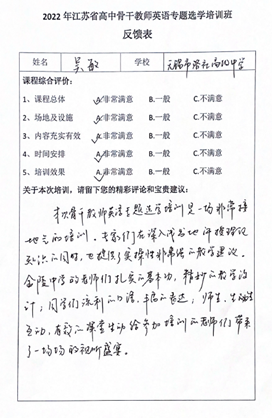 2022年江苏省高中骨干教师英语专题选学培训班
反馈表
姓名 吴敏 学校 无锡市洛社高级中学
课程综合评价:
1、课程总体 A.非常满意 B.一般 C.不满意
2、场地及设施 A.非常满意 B.一般 C.不满意
3、内容充实有效 A.非常满意 B.一般 C.不满意
4、时间安排 A.非常满意 B.一般 C.不满意
5、培训效果 A.非常满意 B.一般 C.不满意
关于本次培训,请留下您的精彩评论和宝贵建议:
本次骨干教师英语专题选学培训是一场非常接
地气的培训。专家们在深入浅出地评授理论
知识的同时,也提供了实操性非常强的教学建议。
金陵中学的老师们扎实的基本功,精妙的教学设
计,同学们流利的口语,丰富的表达,师生、生生
互动,有效的课堂生动给参加培训的老师们带来
了一场场的视听盛宴。